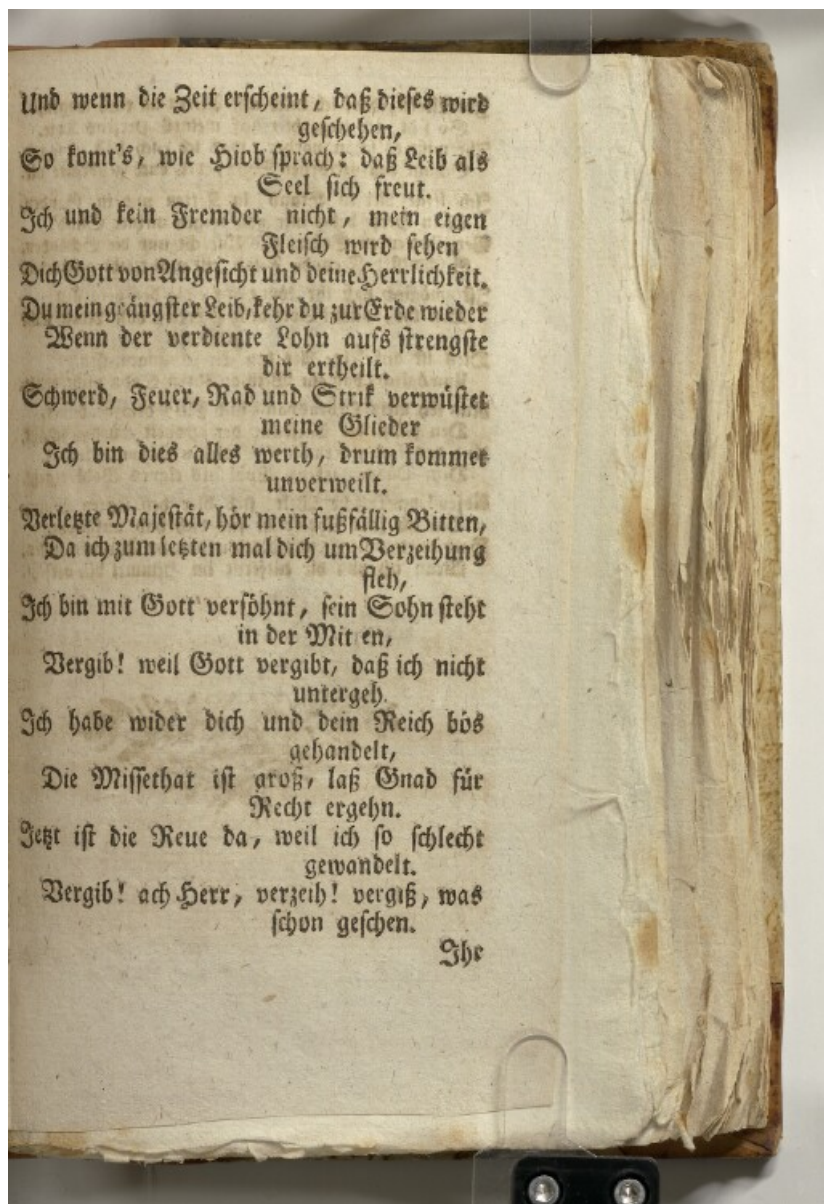 Und wenn die Zeit erscheint, daß dieses wird
geschehen,
So komt's, wie Hiob sprach: daß Leib als
Seel sich freut.
Ich und kein Fremder nicht, mein eigen
Fleisch wird sehen
Dich Gott von Angesicht und deine Herrlichkeit.
Du mein geängster Leib, kehr du zur Erde wieder
Wenn der verdiente Lohn aufs strengste
dir ertheilt.
Schwerd, Feuer, Rad und Strik verwüstet
meine Glieder
Ich bin dies alles werth, drum kommet
unverweilt.
Verletzte Majestät, hör mein fußfällig Bitten,
Da ich zum letzten mal dich um Verzeihung
fleh,
Ich bin mit Gott versöhnt, sein Sohn steht
in der Mit en,
Vergib! weil Gott vergibt, daß ich nicht
untergeh.
Ich habe wider dich und dein Reich bös
gehandelt,
Die Missethat ist groß, laß Gnad für
Recht ergehn.
Jetzt ist die Reue da, weil ich so schlecht
gewandelt.
Vergib! ach Herr, verzeih! vergiß, was
schon geschen.
Ihr